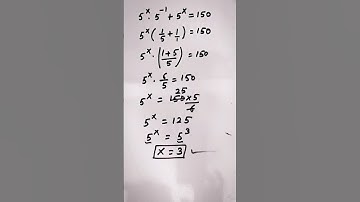 5^x · 5^-1 + 5^x = 150
5^x (1/5 + 1/1) = 150
5^x · (1+5/5) = 150
5^x · 6/5 = 150
5^x = 150 25 × 5/6
5^x = 125
5^x = 5^3
x = 3